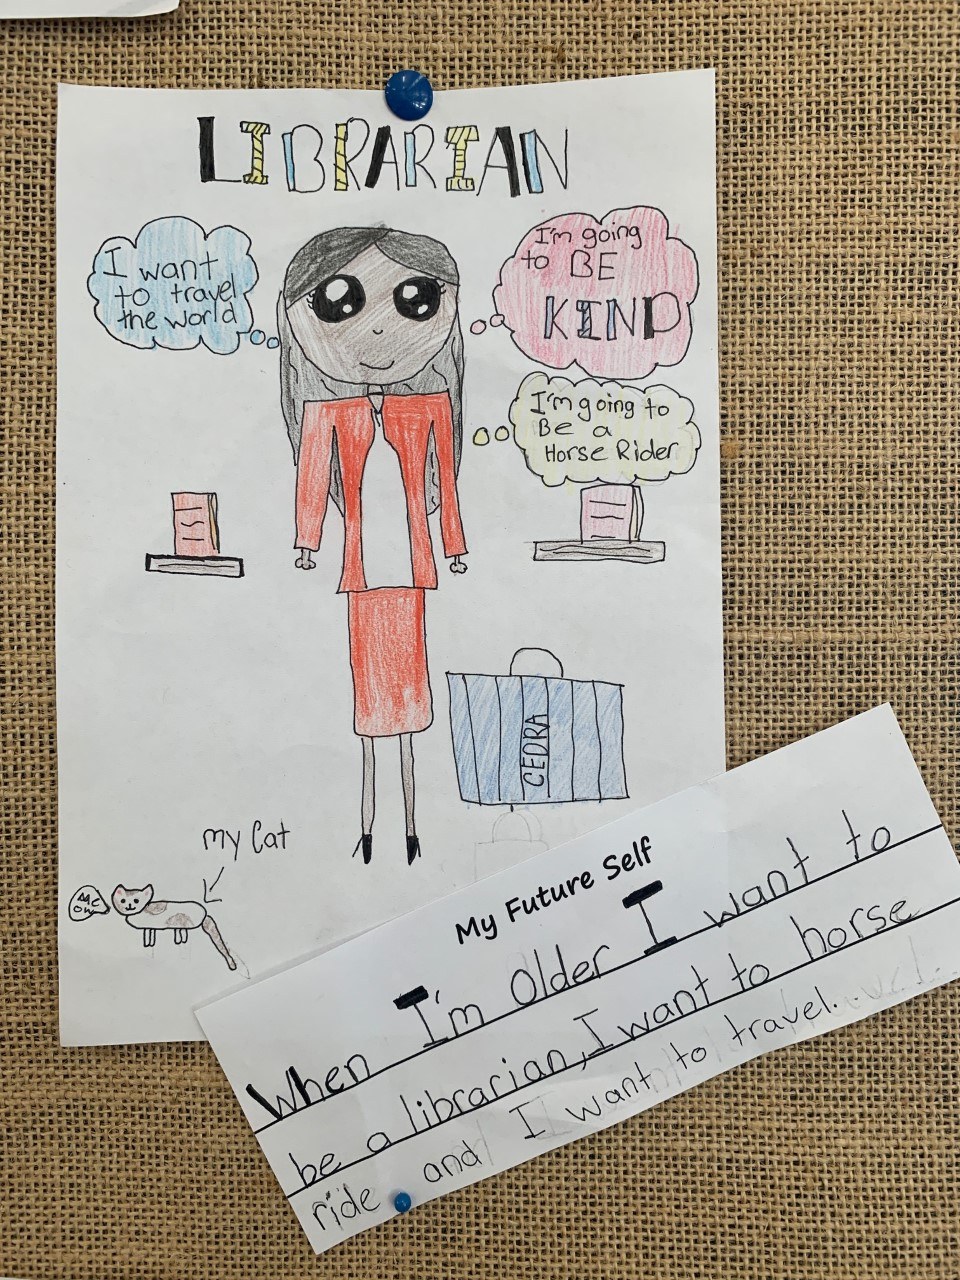 LIBRARIAN
I want
to travel
the world
I'm going
to BE
KIND
I'm going to
Be a
Horse Rider
CEDRA
my Cat
Me
ow
My Future Self
When I'm older I want to
be a librarian, I want to horse
ride and I want to travel.